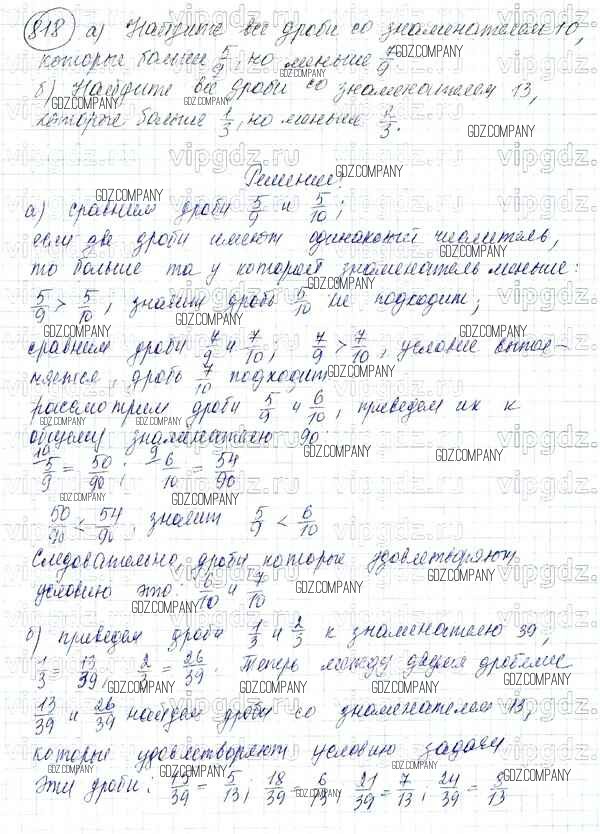 818 а) Найдите все дроби со знаменателем 10,
которые больше 5/9, но меньше 7/9.
б) Найдите все дроби со знаменателем 13,
которые больше 1/3, но меньше 2/3.
Решение:
а) сравним дроби 5/9 и 5/10;
если две дроби имеют одинаковый числитель,
то больше та у которой знаменатель меньше:
5/9 > 5/10, значит дробь 5/10 не подходит;
сравним дроби 7/9 и 7/10; 7/9 > 7/10, условие выпол-
няется, дробь 7/10 подходит
рассмотрим дроби 5/9 и 6/10, приведем их к
общему знаменателю 90
10 5/9 = 50/90; 9 6/10 = 54/90
50/90 < 54/90, значит 5/9 < 6/10
Следовательно, дроби которые удовлетворяют
условию это: 6/10 и 7/10
б) приведем дроби 1/3 и 2/3 к знаменателю 39,
1/3 = 13/39, 2/3 = 26/39. Теперь между двумя дробями
13/39 и 26/39 найдем дроби со знаменателем 13,
которые удовлетворяют условию задачи
Эти дроби: 15/39 = 5/13; 18/39 = 6/13; 21/39 = 7/13; 24/39 = 8/13
GDZ.COMPANY
vipgdz.ru